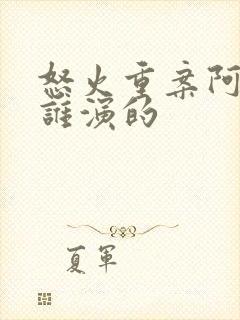 怒火重案阿
誰演的
夏軍